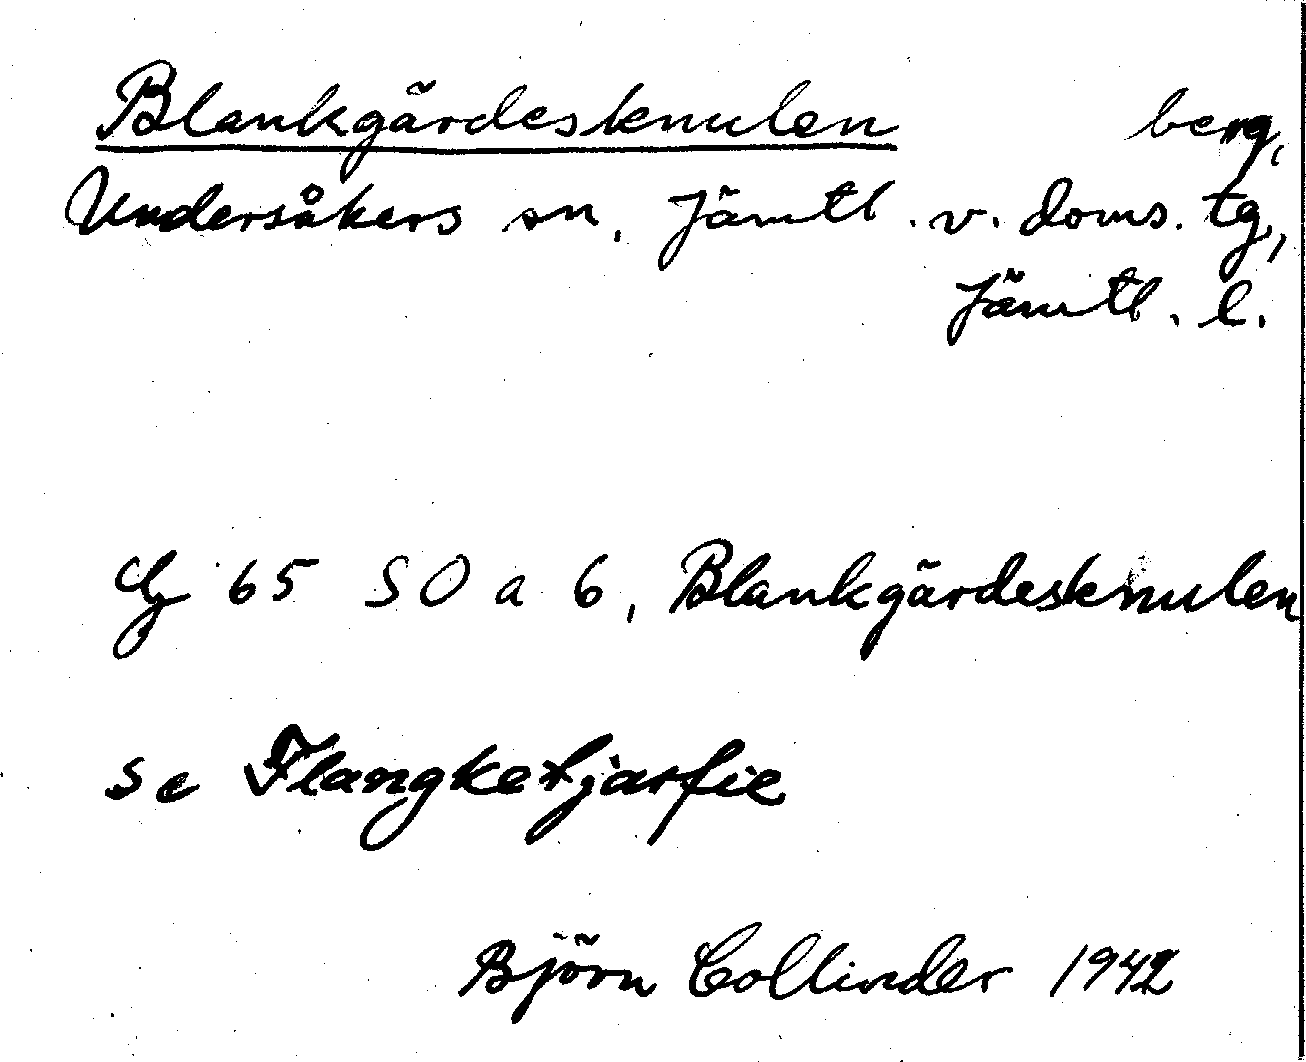 Blankgärdesknulen berg,
Undersåkers sn, Jämtl. v. doms. tg,
Jämtl. l.
Cg 65 SO a 6, Blankgärdesknulen
se Flangketjarfie
Björn Collinder 1942